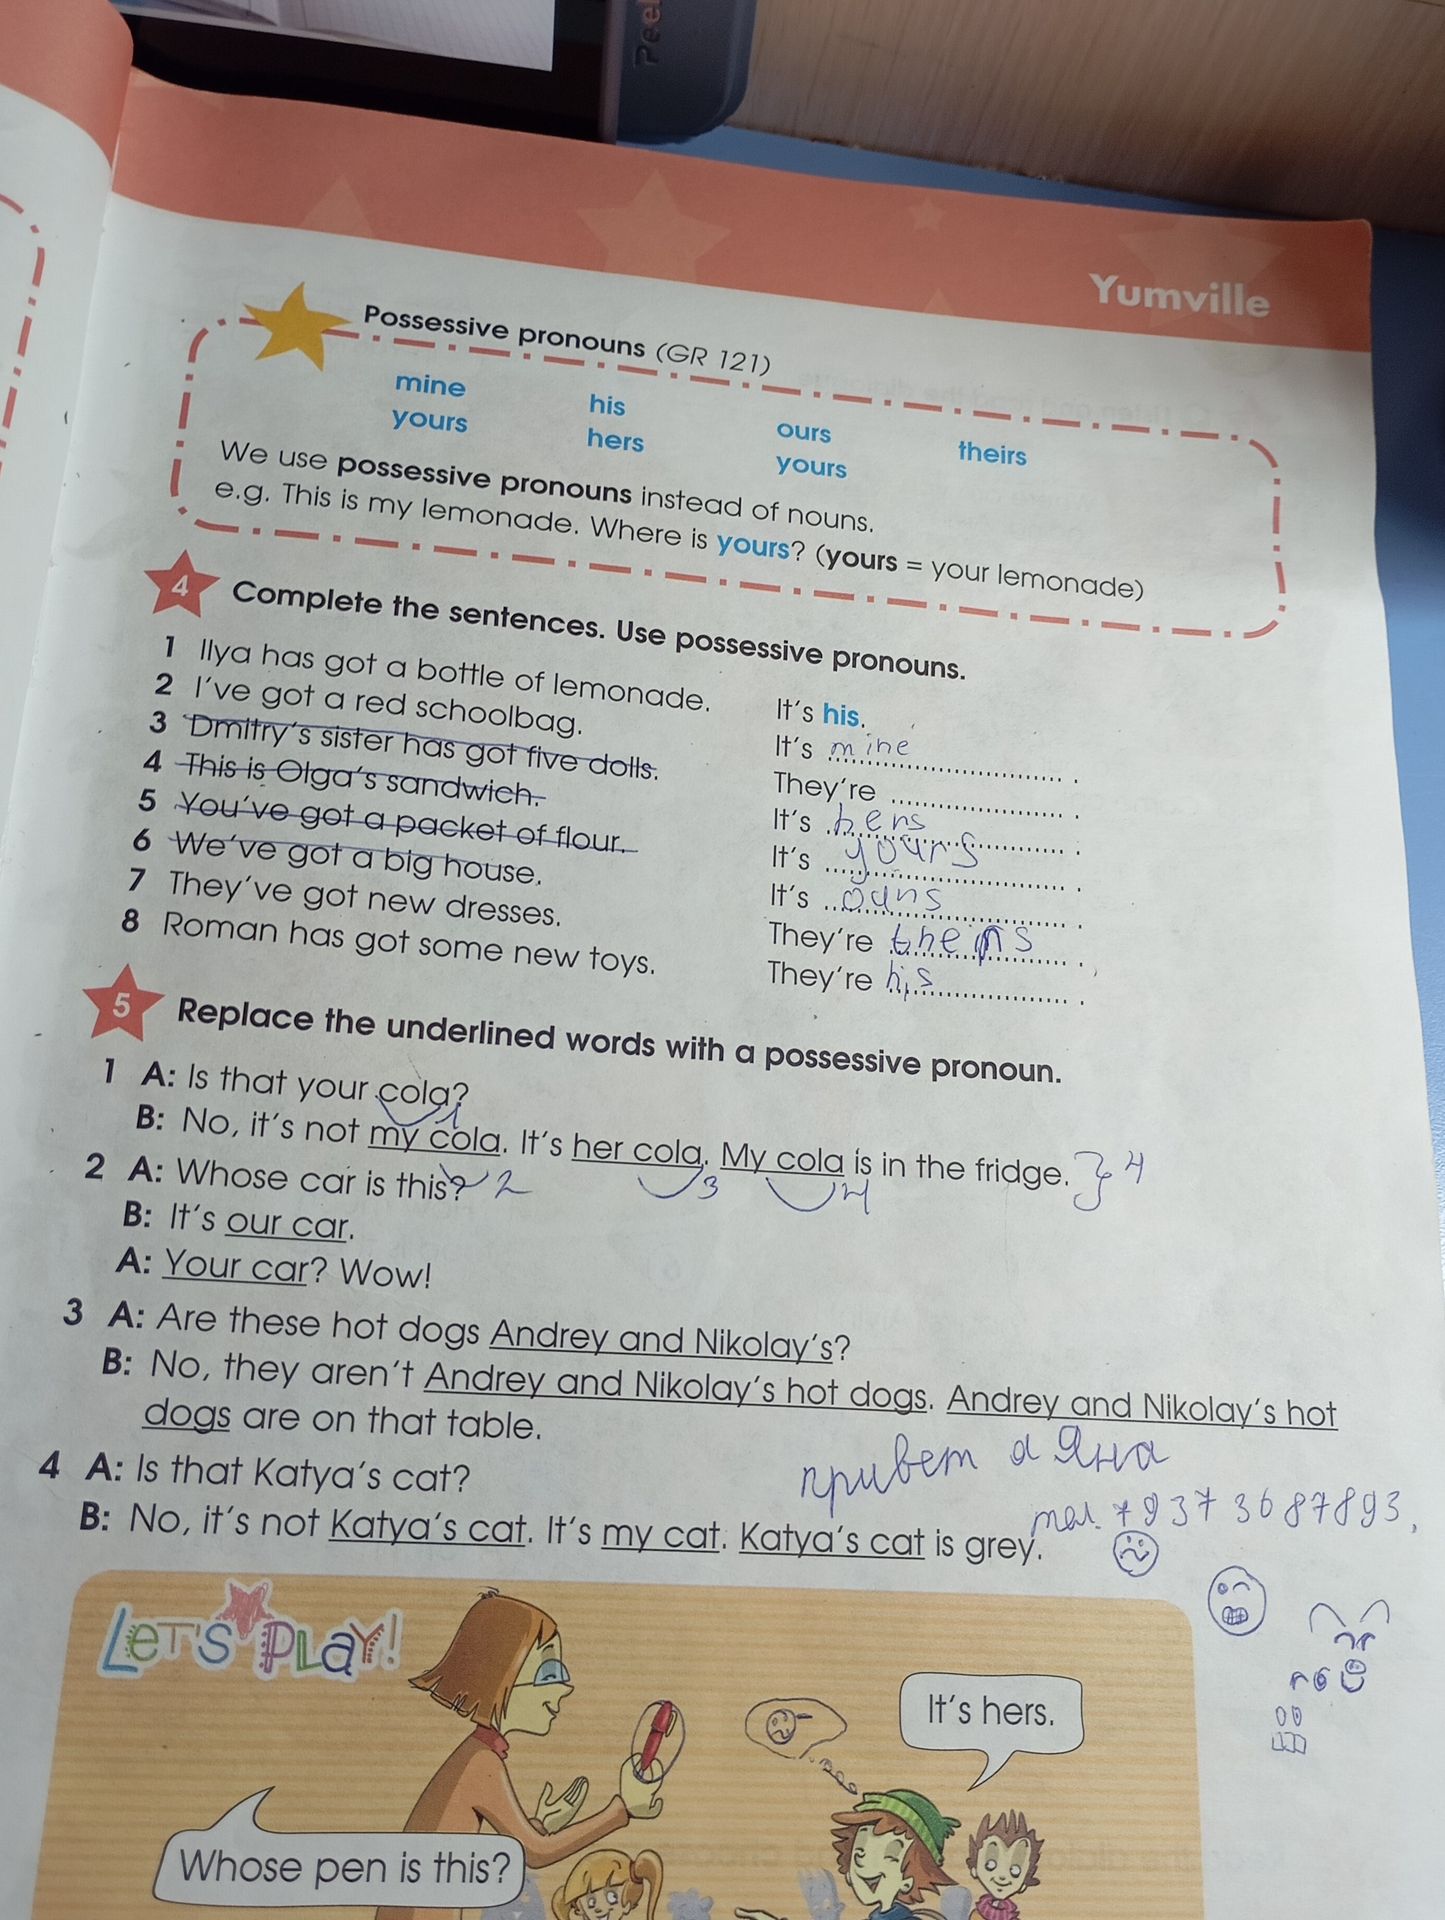 Peel
Yumville
Possessive pronouns (GR 121)
mine his ours theirs
yours hers yours
We use possessive pronouns instead of nouns.
e.g. This is my lemonade. Where is yours? (yours = your lemonade)
4 Complete the sentences. Use possessive pronouns.
1 Ilya has got a bottle of lemonade. It's his.
2 I've got a red schoolbag. It's mine.
3 Dmitry's sister has got five dolls. They're .
4 This is Olga's sandwich. It's hers.
5 You've got a packet of flour. It's yours.
6 We've got a big house. It's ours.
7 They've got new dresses. They're theirs.
8 Roman has got some new toys. They're his.
5 Replace the underlined words with a possessive pronoun.
1 A: Is that your cola?
B: No, it's not my cola. It's her cola. My cola is in the fridge. } 4
2 A: Whose car is this? 2 3 4
B: It's our car.
A: Your car? Wow!
3 A: Are these hot dogs Andrey and Nikolay's?
B: No, they aren't Andrey and Nikolay's hot dogs. Andrey and Nikolay's hot
dogs are on that table.
привет а Яна
4 A: Is that Katya's cat?
79373687893.
B: No, it's not Katya's cat. It's my cat. Katya's cat is grey.
LET'S PLAY!
It's hers.
Whose pen is this?